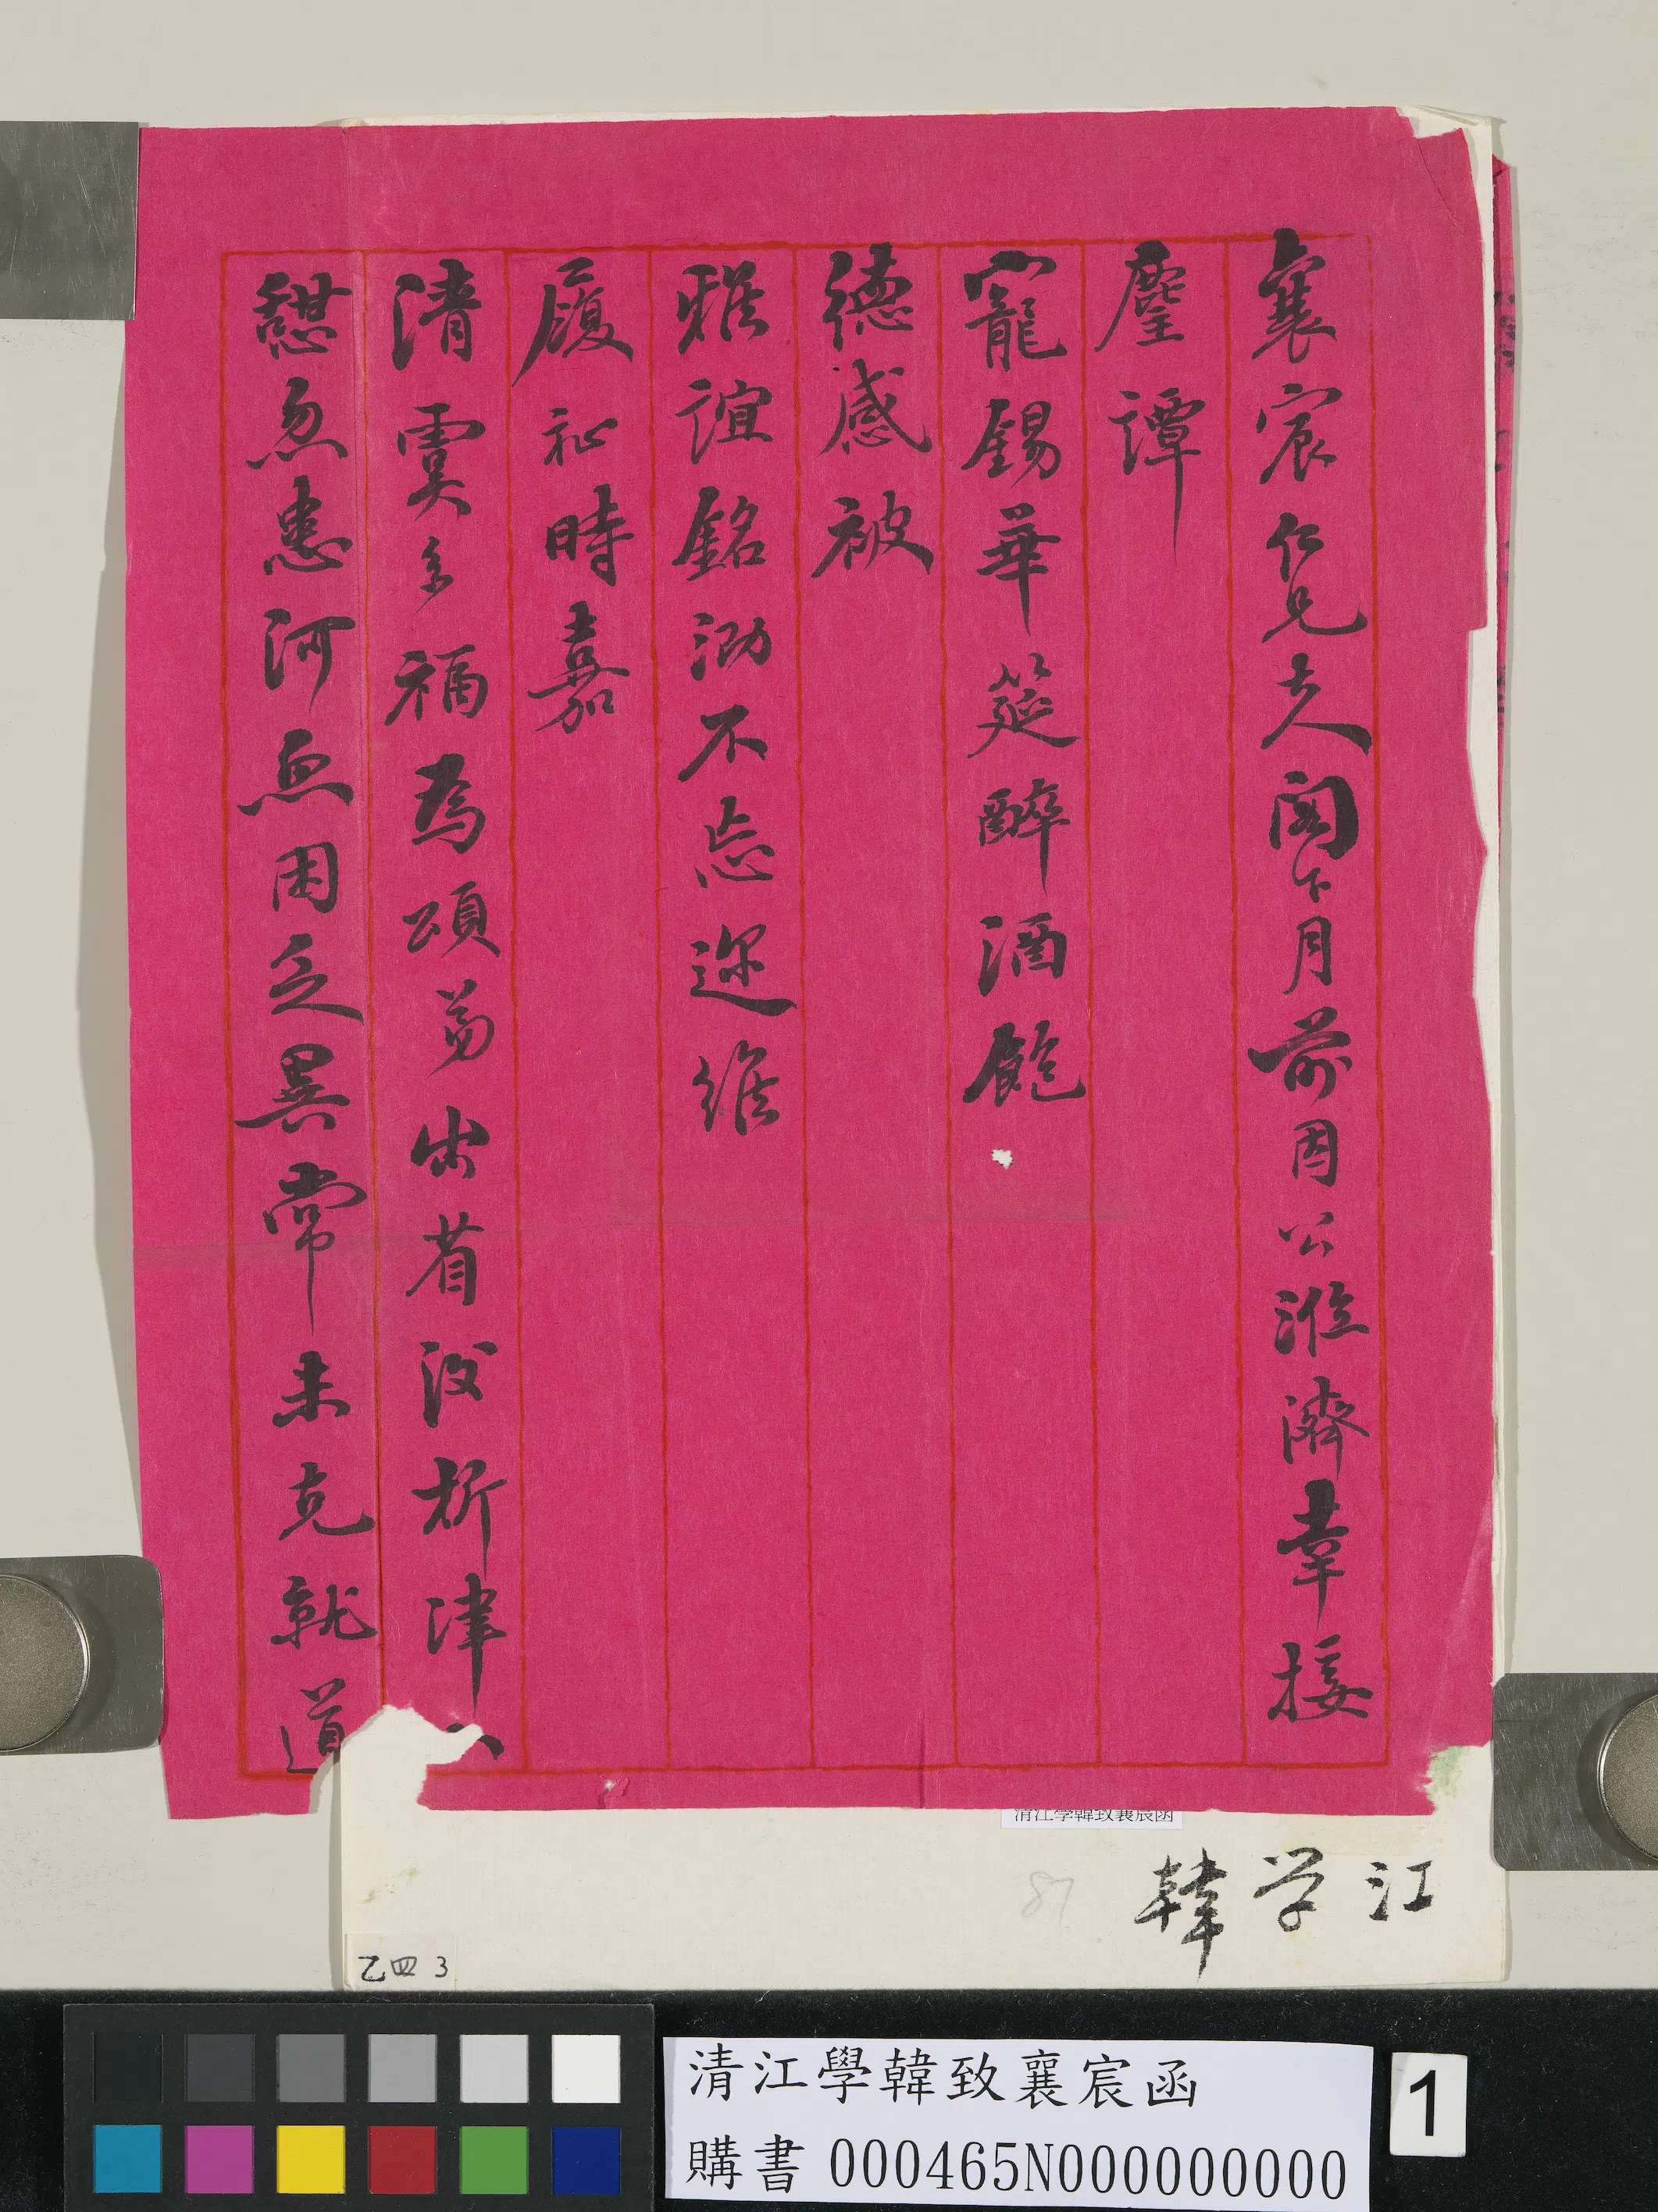 襄宸仁兄大人閣下月前因公濰濟幸接
麈譚
寵錫華筵醉酒飽
德感被
雅誼銘泐不忘邇維
履祉時嘉
清雲多福為頌弟出省後析津
憩忽患河魚困乏異常未克就道
清江學韓致襄宸函
江学韓
87
乙四 3
清江學韓致襄宸函
購書 000465N000000000
1